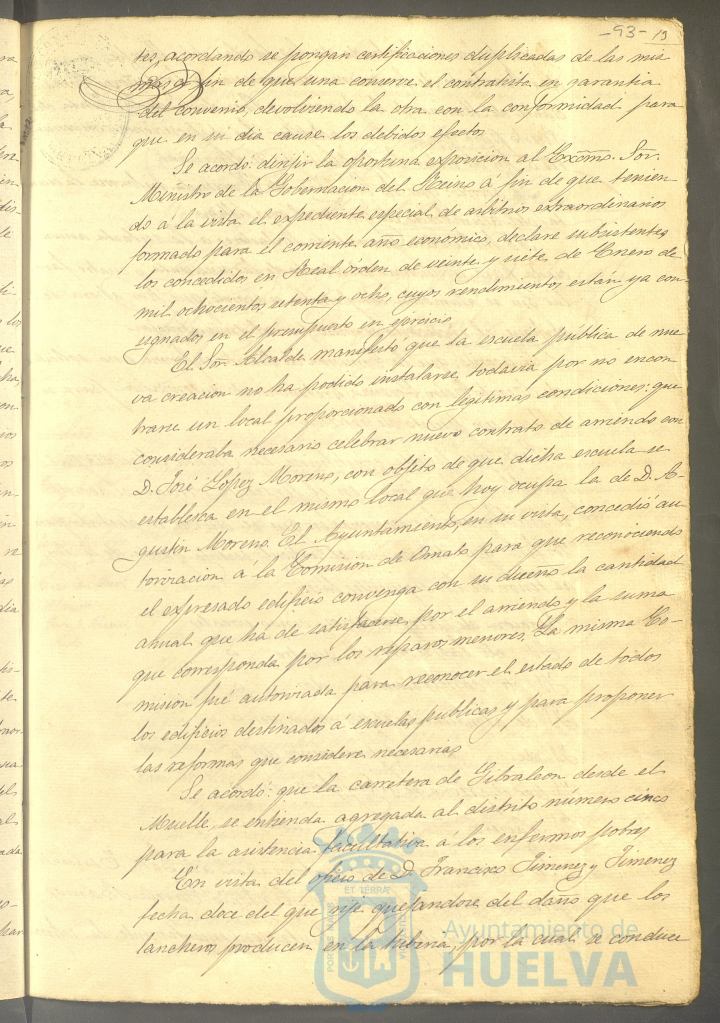 -93- 13
tes, acordando se pongan certificaciones duplicadas de las mis
mas á fin de que una conserve el contratista en garantia
del convenio, devolviendo la otra con la conformidad para
que en su dia cause los debidos efectos
Se acordó: dirijir la oportuna exposicion al Excmo. Sor.
Ministro de la Gobernacion del Reino á fin de que tenien
do á la vista el expediente especial de arbitrios extraordinarios
formado para el corriente año económico, declare subsistentes
los concedidos en Real órden de veinte y siete de Enero de
mil ochocientos setenta y ocho, cuyos rendimientos están ya con
signados en el presupuesto en ejercicio
El Sor. Alcalde manifestó que la escuela pública de nue
va creacion no ha podido instalarse todavia por no encon
trarse un local proporcionado con legitimas condiciones: que
consideraba necesario celebrar nuevo contrato de arriendo con
D. José Lopez Moreno, con objeto de que dicha escuela se
establezca en el mismo local que hoy ocupa la de D. A-
gustin Moreno. El Ayuntamiento, en su vista, concedió au
torizacion á la Comision de Ornato para que reconociendo
el expresado edificio convenga con su dueño la cantidad
anual que ha de satisfacerse por el arriendo y la suma
que corresponda por los reparos menores. La misma Co-
mision fué autorizada para reconocer el estado de todos
los edificios destinados á escuelas publicas y para proponer
las reformas que considere necesarias
Se acordó: que la carretera de Gibraleon desde el
Muelle, se entienda agregada al distrito número cinco
para la asistencia facultativa á los enfermos pobres
En vista del oficio de D. Francisco Jimenez y Jimenez
fecha doce del que rije quejandose del daño que los
lancheros producen en la tuberia, por la cual se conduce
ET TERRÆ
Ayuntamiento de
HUELVA